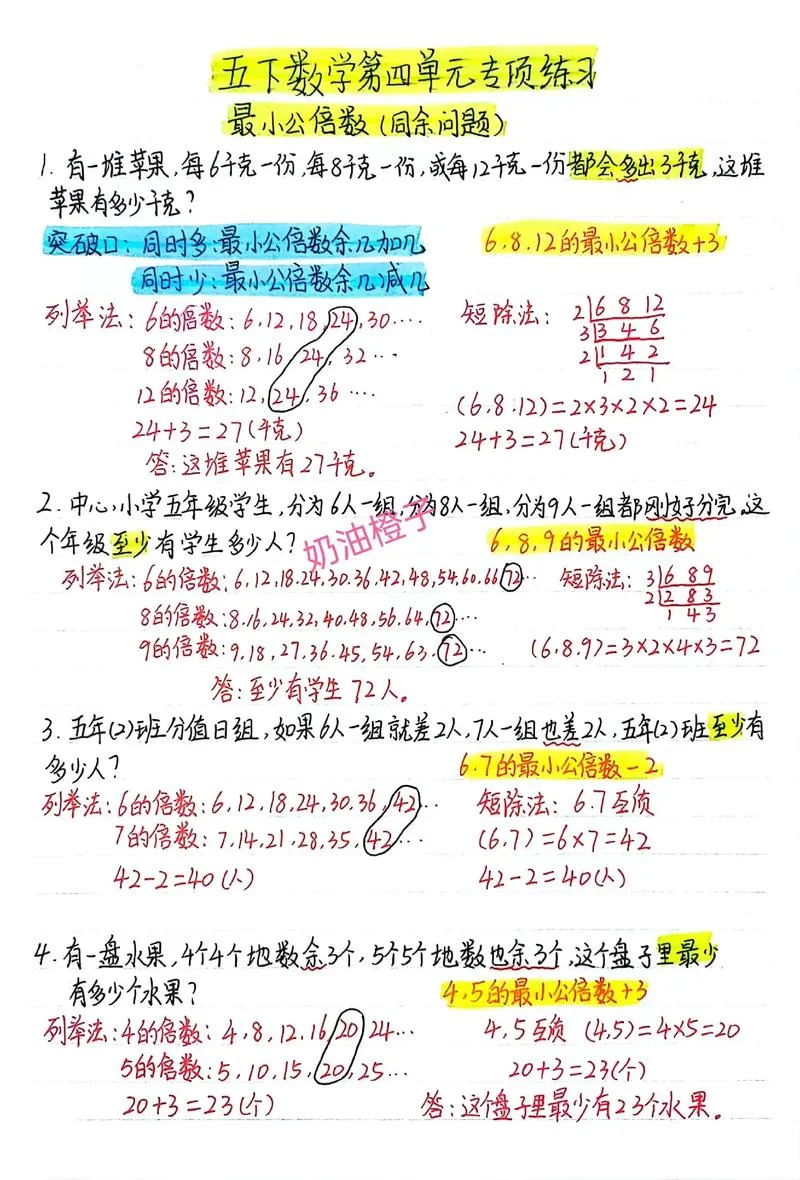 五下数学第四单元专项练习
最小公倍数(同余问题)
1. 有一堆苹果,每6千克一份,每8千克一份,或每12千克一份都会多出3千克,这堆
苹果有多少千克?
突破口: 同时多:最小公倍数余几加几
6.8.12的最小公倍数+3
同时少:最小公倍数余几减几
列举法: 6的倍数: 6,12,18,24,30····
8的倍数: 8,16,24,32···
12的倍数: 12,24,36····
24+3=27(千克)
答:这堆苹果有27千克。
短除法:
2 6 8 12
3 3 4 6
2 1 4 2
1 2 1
(6.8.12)=2×3×2×2=24
24+3=27(千克)
2. 中心小学五年级学生,分为6人一组,分为8人一组,分为9人一组都刚好分完,这
个年级至少有学生多少人?
奶油橙子
6,8,9的最小公倍数
列举法: 6的倍数: 6,12,18.24,30.36.42,48,54.60.66,72···
8的倍数: 8.16,24,32,40.48,56.64,72···
9的倍数: 9,18,27,36.45,54,63,72···
短除法:
3 6 8 9
2 2 8 3
1 4 3
(6.8.9)=3×2×4×3=72
答:至少有学生72人。
3. 五年(2)班分值日组,如果6人一组就差2人,7人一组也差2人,五年(2)班至少有
多少人?
6.7的最小公倍数-2
列举法: 6的倍数: 6,12,18,24,30.36,42···
7的倍数: 7,14,21,28,35,42···
42-2=40(人)
短除法: 6.7互质
(6.7)=6×7=42
42-2=40(人)
4. 有一盘水果,4个4个地数余3个,5个5个地数也余3个,这个盘子里最少
有多少个水果?
4,5的最小公倍数+3
列举法: 4的倍数: 4,8,12,16,20,24···
5的倍数: 5,10,15,20,25···
20+3=23(个)
4,5互质 (4,5)=4×5=20
20+3=23(个)
答:这个盘子里最少有23个水果。